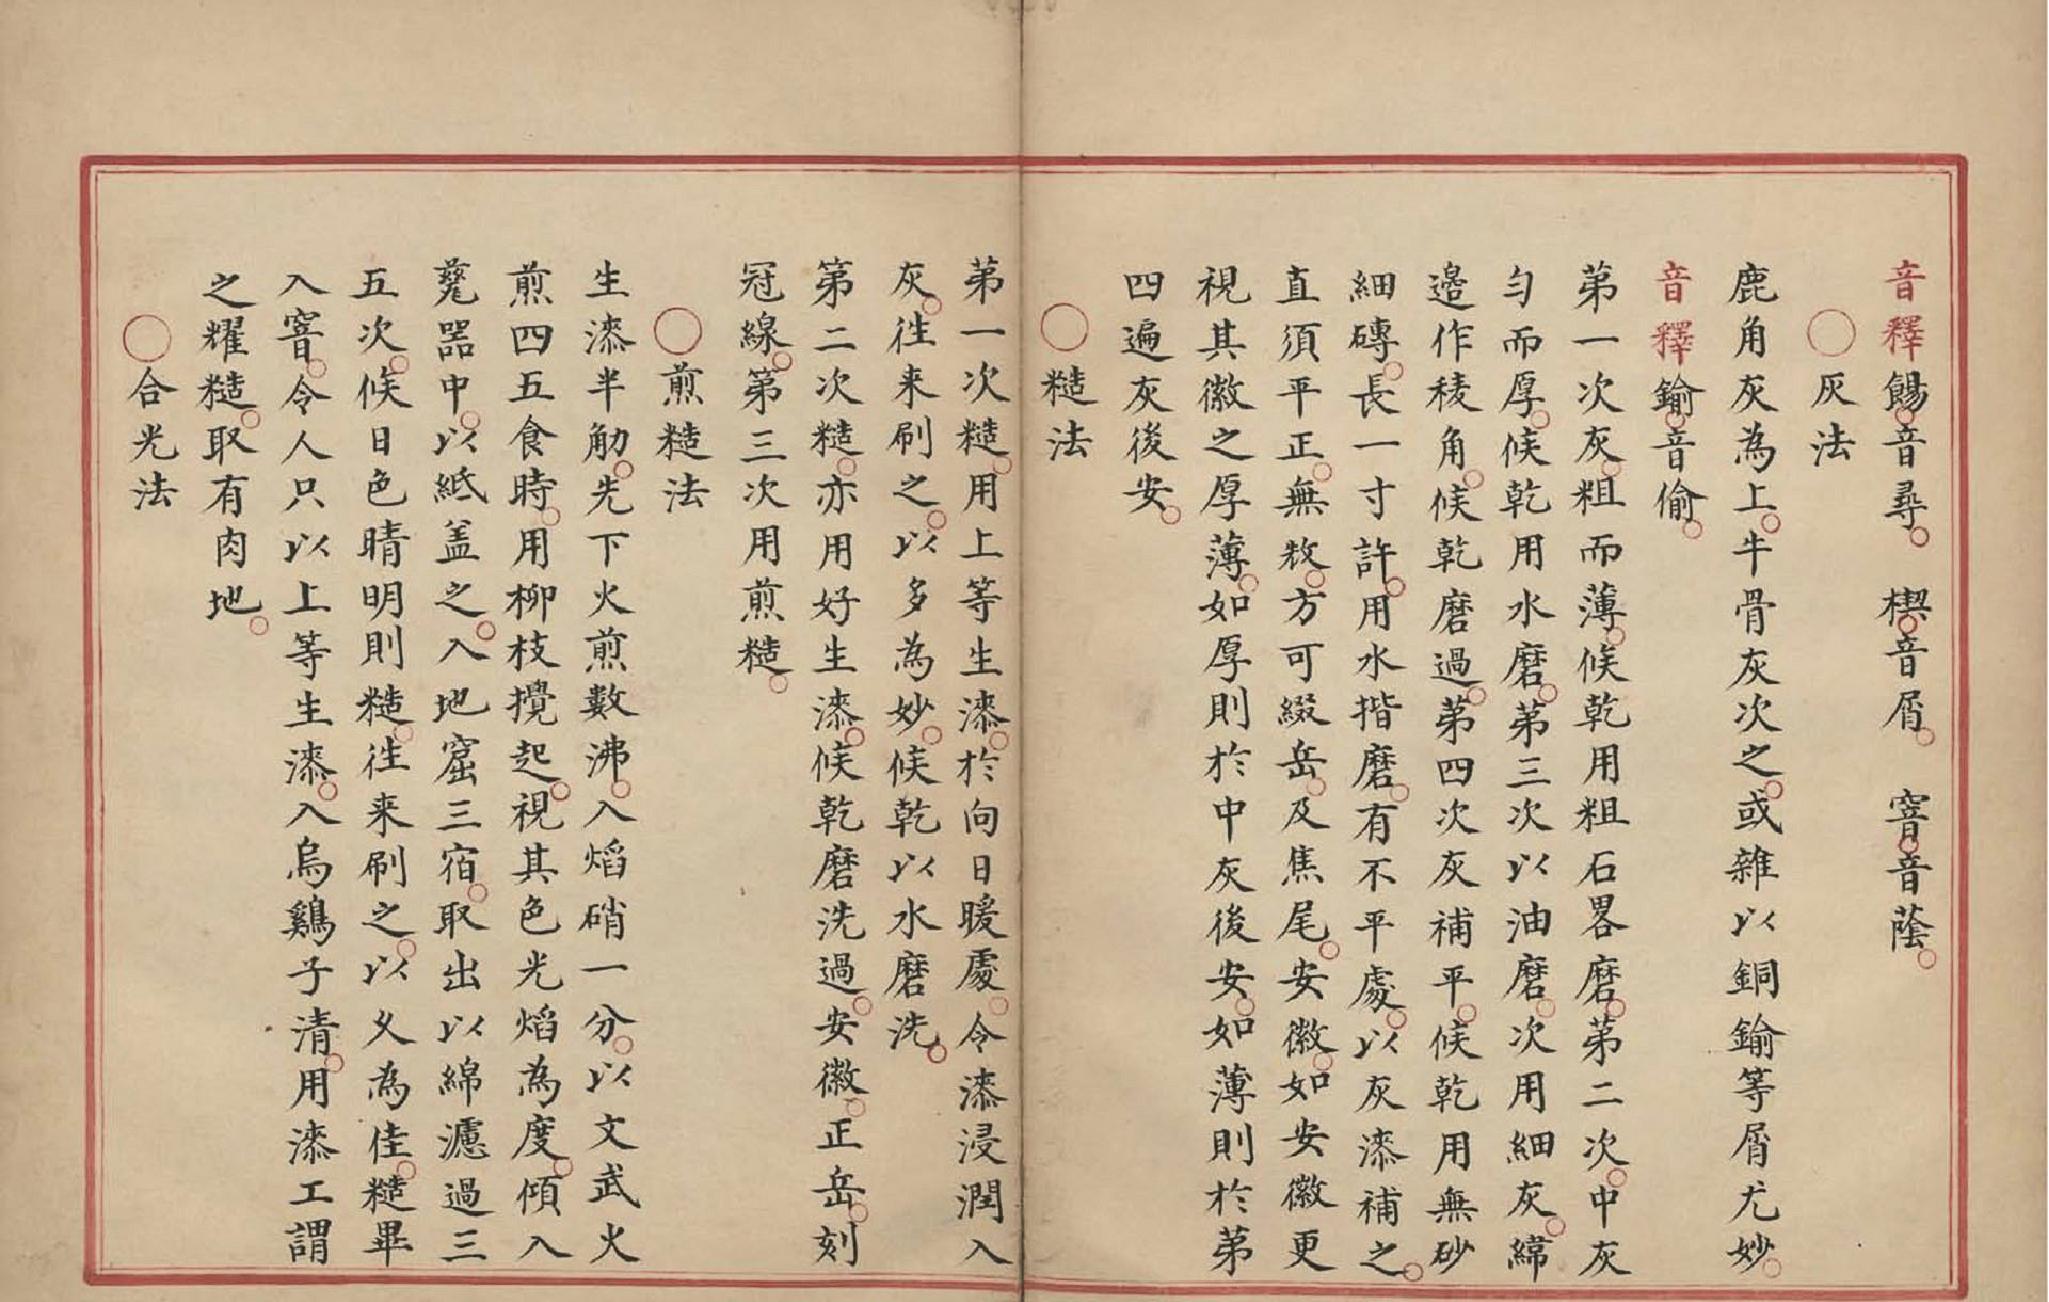 音釋餳音尋。 楔音屑。 窨音蔭。
○灰法
鹿角灰為上。牛骨灰次之。或雜以銅鍮等屑尤妙。
音釋鍮音偷。
第一次灰。粗而薄。候乾用粗石畧磨。第二次。中灰
勻而厚。候乾用水磨。第三次以油磨。次用細灰。縴
邉作稜角。候乾磨過。第四次灰補平。候乾用無砂
細磚。長一寸許。用水揩磨。有不平處。以灰漆補之。
直須平正。無敹。方可綴岳。及焦尾。安徽。如安徽更
視其徽之厚薄。如厚則於中灰後安。如薄則於第
四遍灰後安。
○糙法
第一次糙。用上等生漆。於向日暖處。令漆浸潤入
灰。徃来刷之。以多為妙。候乾以水磨洗。
第二次糙。亦用好生漆。候乾磨洗過。安徽。正岳。刻
冠線。第三次用煎糙。
○煎糙法
生漆半觔。先下火煎數沸。入焰硝一分。以文武火
煎四五食時。用柳枝攪起。視其色光焰為度。傾入
甆噐中。以紙盖之。入地窟三宿。取出以綿濾過三
五次。候日色晴明則糙。徃来刷之。以乆為佳。糙畢
入窨。令人只以上等生漆。入烏鷄子清。用漆工謂
之耀糙。取有肉地。
○合光法